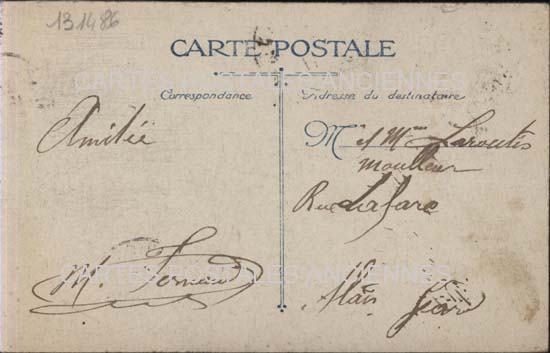 131486
CARTE POSTALE
CARTES POSTALES ANCIENNES
Correspondance
Adresse du destinataire
Amitié
M. et Mme Laroutis
Mouleur
Rue Lafare
CARTES POSTALES ANCIENNES
Alais Gard